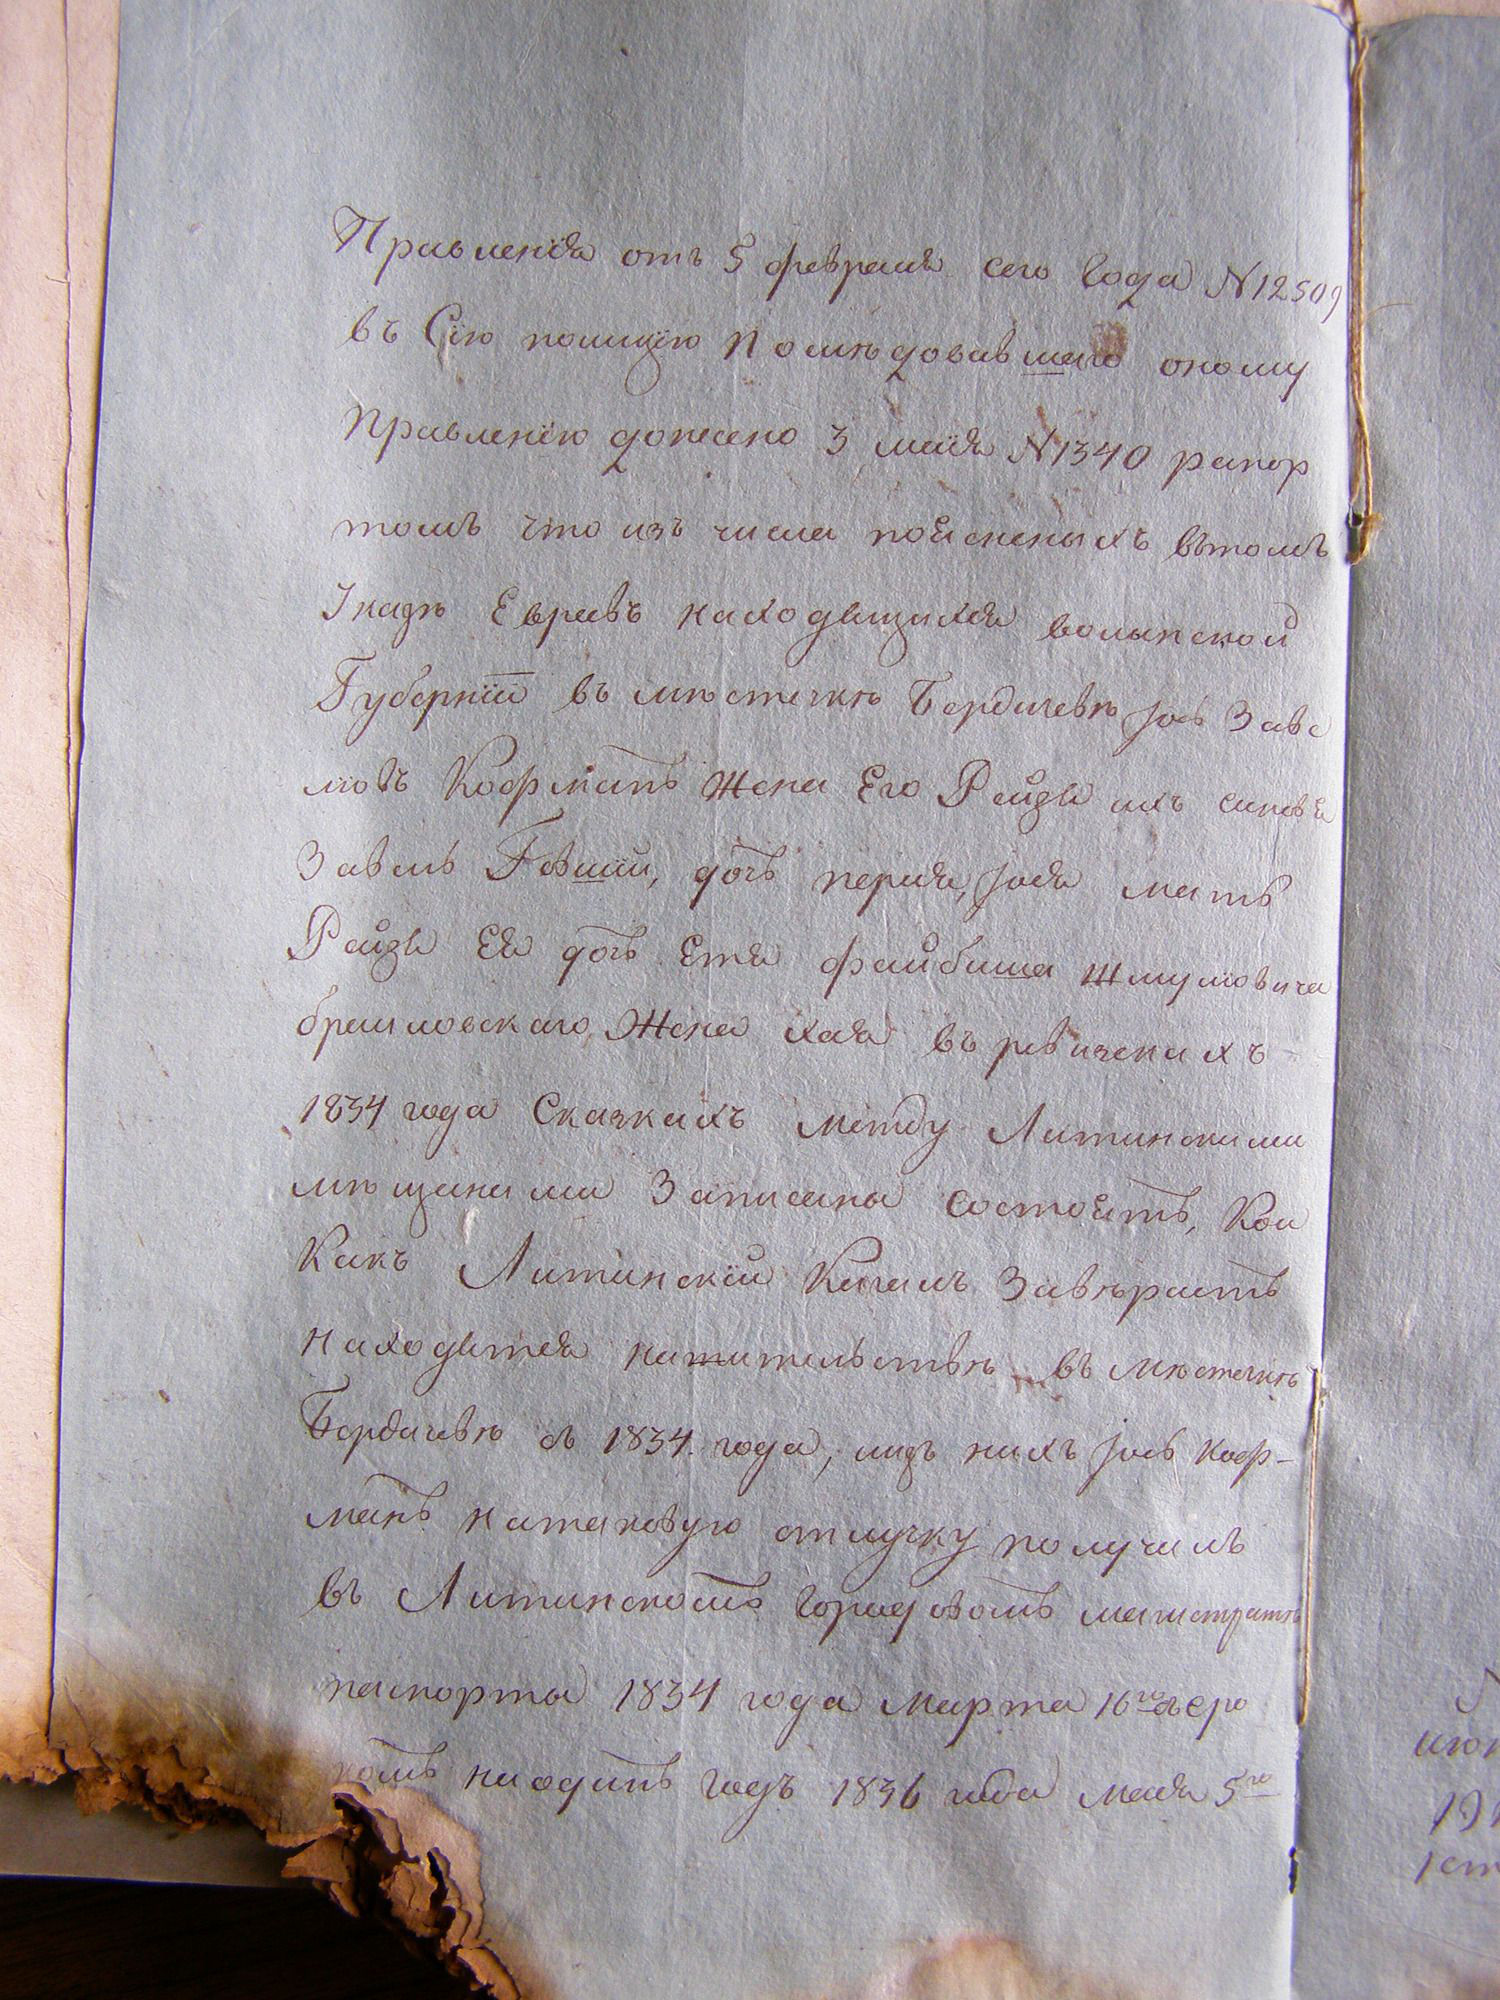 Правленія отъ 5 февраля сего года N 12509
въ Сію полицію Последовавшаго оному
Правленію донесено 3 маія N 1340 рапор
томъ что изъ числа пояснены хъ вътомъ
Указѣ Евреевъ находящихся волынской
Губерніи въ мѣстечкѣ Бердичевѣ Іось Заве
ліовъ Кофманъ жена Его Рейзя ихъ сыновя
Завель Говшій, дочь перля, Іося мать
Рейзи Ея дочь Етя файбиша Шмуліовича
браиловскаго Жена хая въ ревизскихъ
1834 года Сказкахъ между Литинскими
мѣщанами Записаны состоятъ, Кои
Какъ Литинскій Кагалъ Завѣряетъ
находятся нажительствѣ въ мѣстечкѣ
Бердичевѣ съ 1834. года, изъ нихъ Іось Коф-
манъ натаковую отлучку получилъ
въ Литинскомъ городовомъ магистратѣ
паспорты 1834 года Марта 16го съ сро
комъ на одинъ годъ 1836 года маія 5го